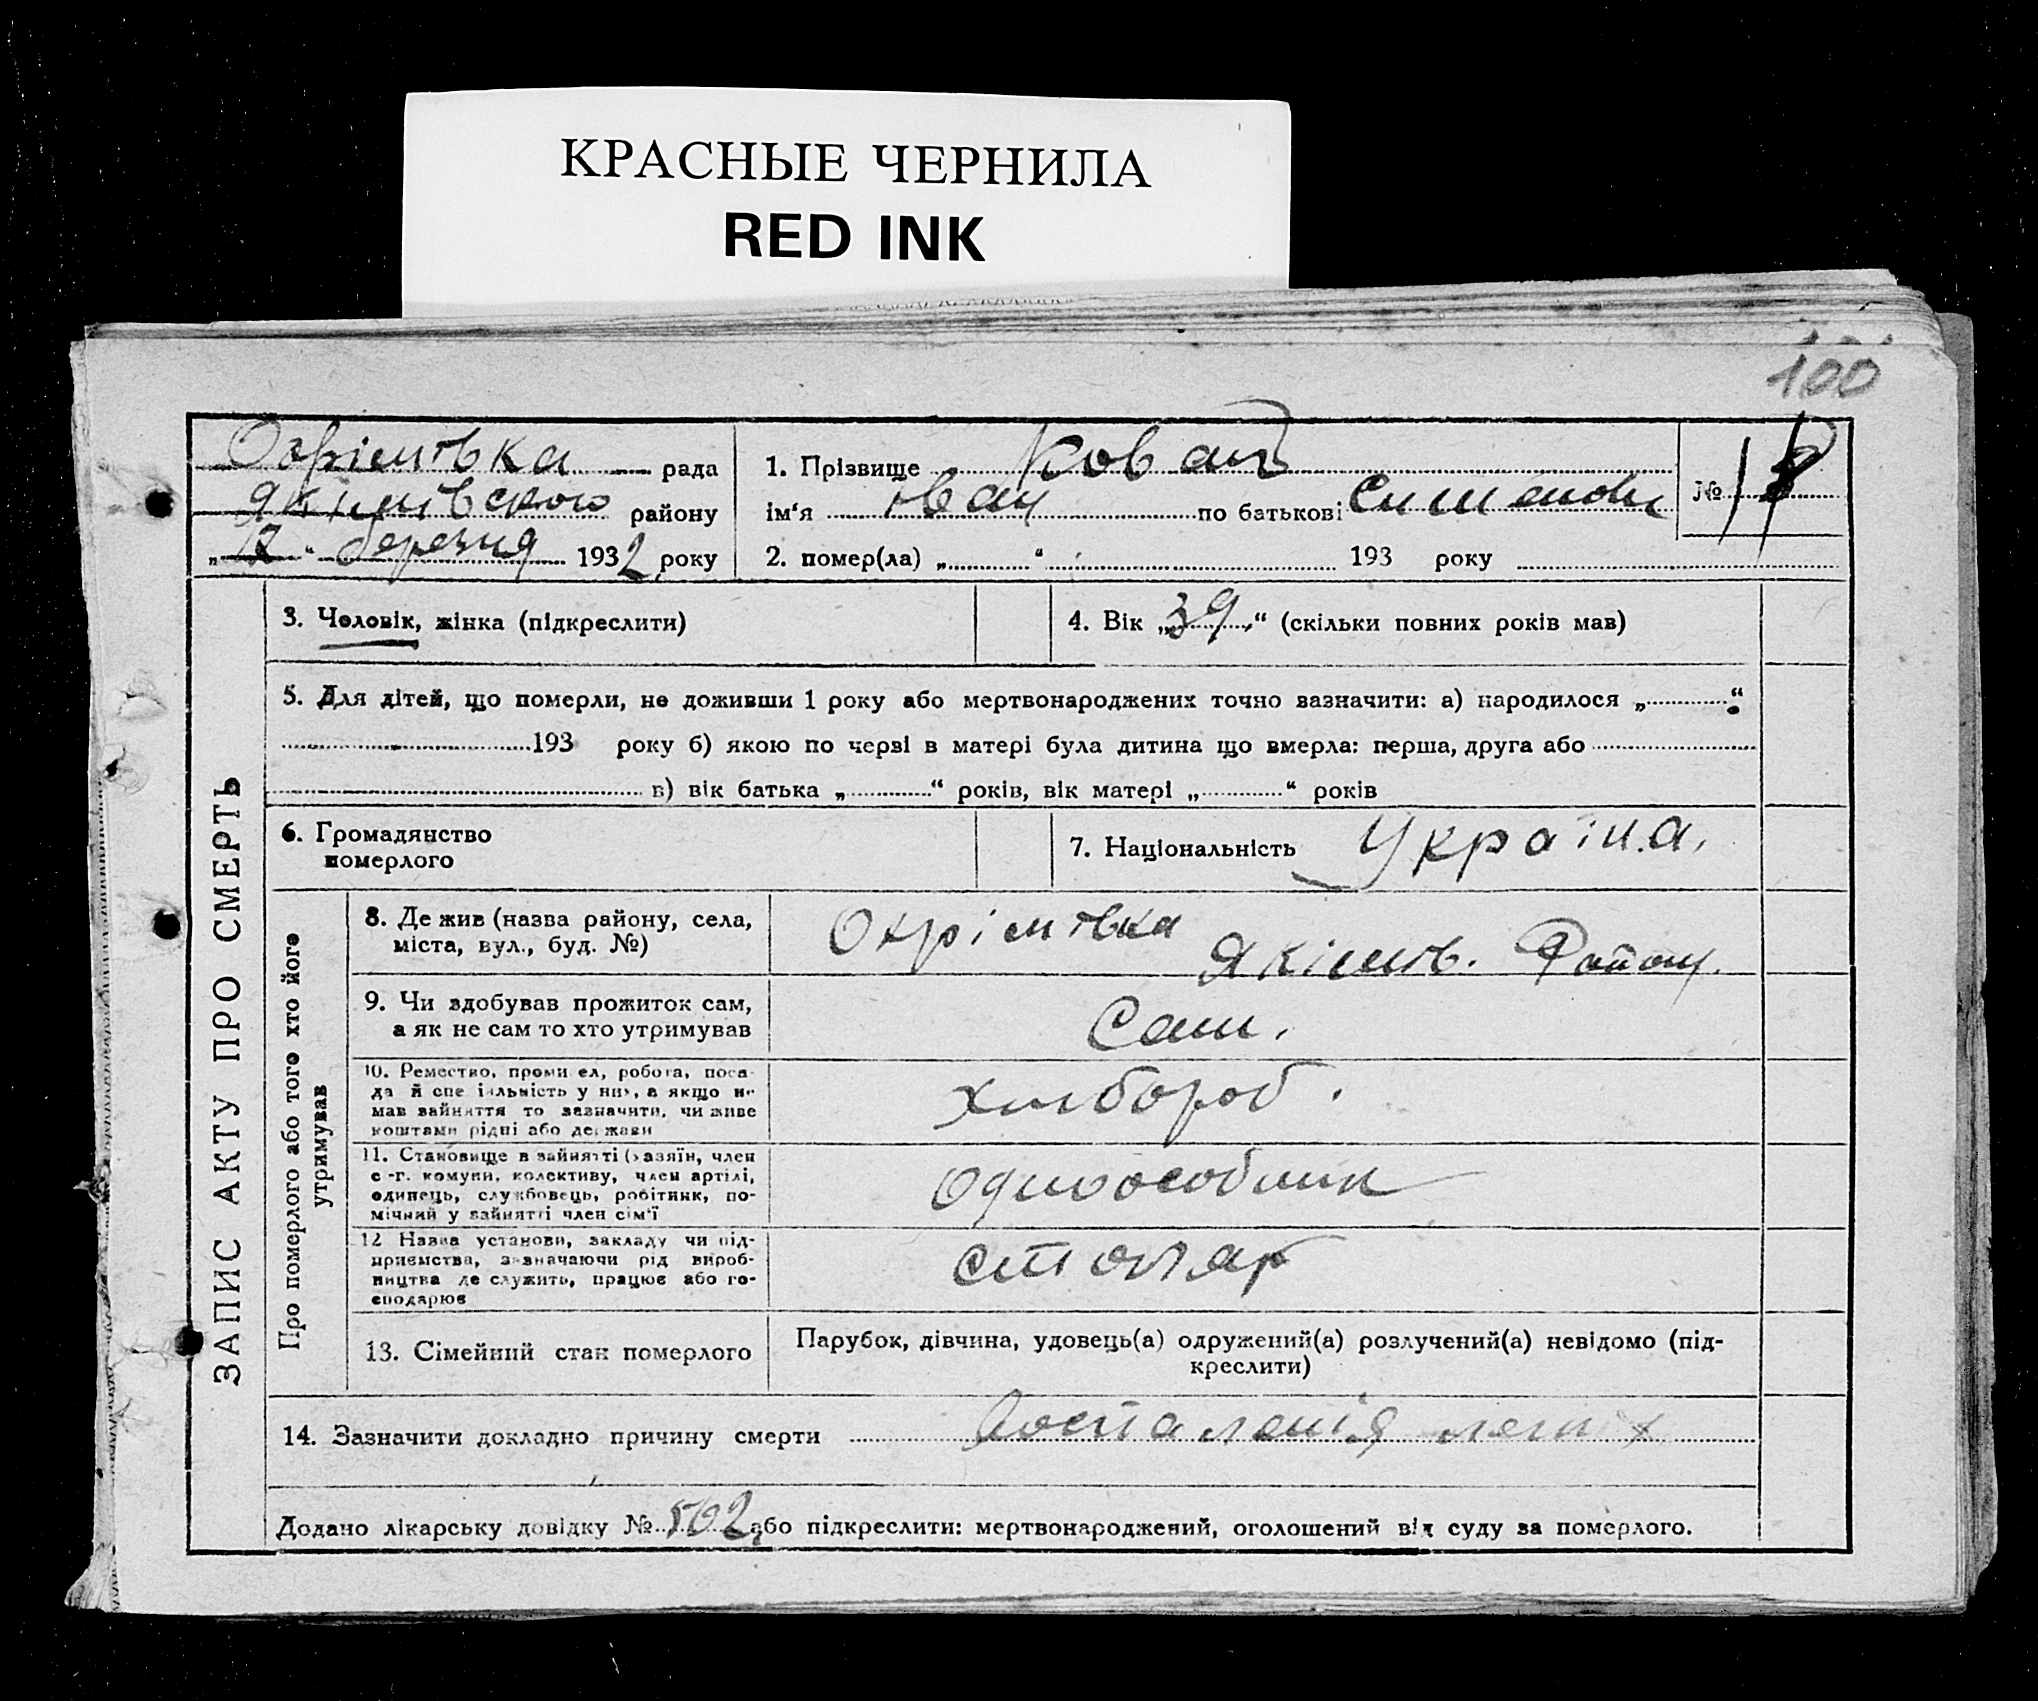 КРАСНЫЕ ЧЕРНИЛА
RED INK
100
Охрімівка рада
Якимівского району
„12“ березня 1932 року
1. Прізвище Ковач
ім‘я Іван по батькові
№
2. помер(ла) „ “ 193 року
ЗАПИС АКТУ ПРО СМЕРТЬ
3. Чоловік, жінка (підкреслити)
4. Вік „39“ (скільки повних років мав)
5. Для дітей, що померли, не доживши 1 року або мертвонароджених точно зазначити: а) народилося „ “
193 року б) якою по черві в матері була дитина що вмерла: перша, друга або
в) вік батька „ “ років, вік матері „ “ років
6. Громадянство
померлого
7. Національність Україн.а.
Про померлого або того хто його
утримував
8. Де жив (назва району, села,
міста, вул., буд. №)
Охрімівка
Якімів. Району.
9. Чи здобував прожиток сам,
а як не сам то хто утримував
Сам.
10. Ремество, промисел, робота, поса-
да й спеціяльність у них, а якщо не
мав зайняття то зазначити, чи живе
коштами рідні або держави
хлібороб.
11. Становище в зайнятті (хазяїн, член
с.-г. комуни, колективу, член артілі,
одинець, службовець, робітник, по-
мічний у зайнятті член сім‘ї
одноособник
12 Назва установи, закладу чи під-
приємства, зазначаючи рід вироб-
ництва де служить, працює або го-
сподарює
столяр
13. Сімейний стан померлого
Парубок, дівчина, удовець(а) одружений(а) розлучений(а) невідомо (під-
креслити)
14. Зазначити докладно причину смерти Воспаленія легких
Додано лікарську довідку № 502 або підкреслити: мертвонароджений, оголошений від суду за померлого.